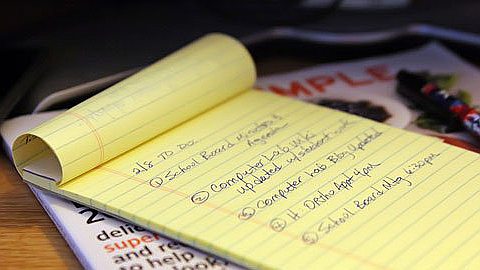 MPLE
2/8 TO DO
① School Board Minutes &
Agenda
② Computer Lab Mtg
updated w/student work
③ Computer Lab Blog updated
④ H Ortho Appt 4pm
⑤ School Board Mtg 6:30pm
2
delic
super
and re
to help